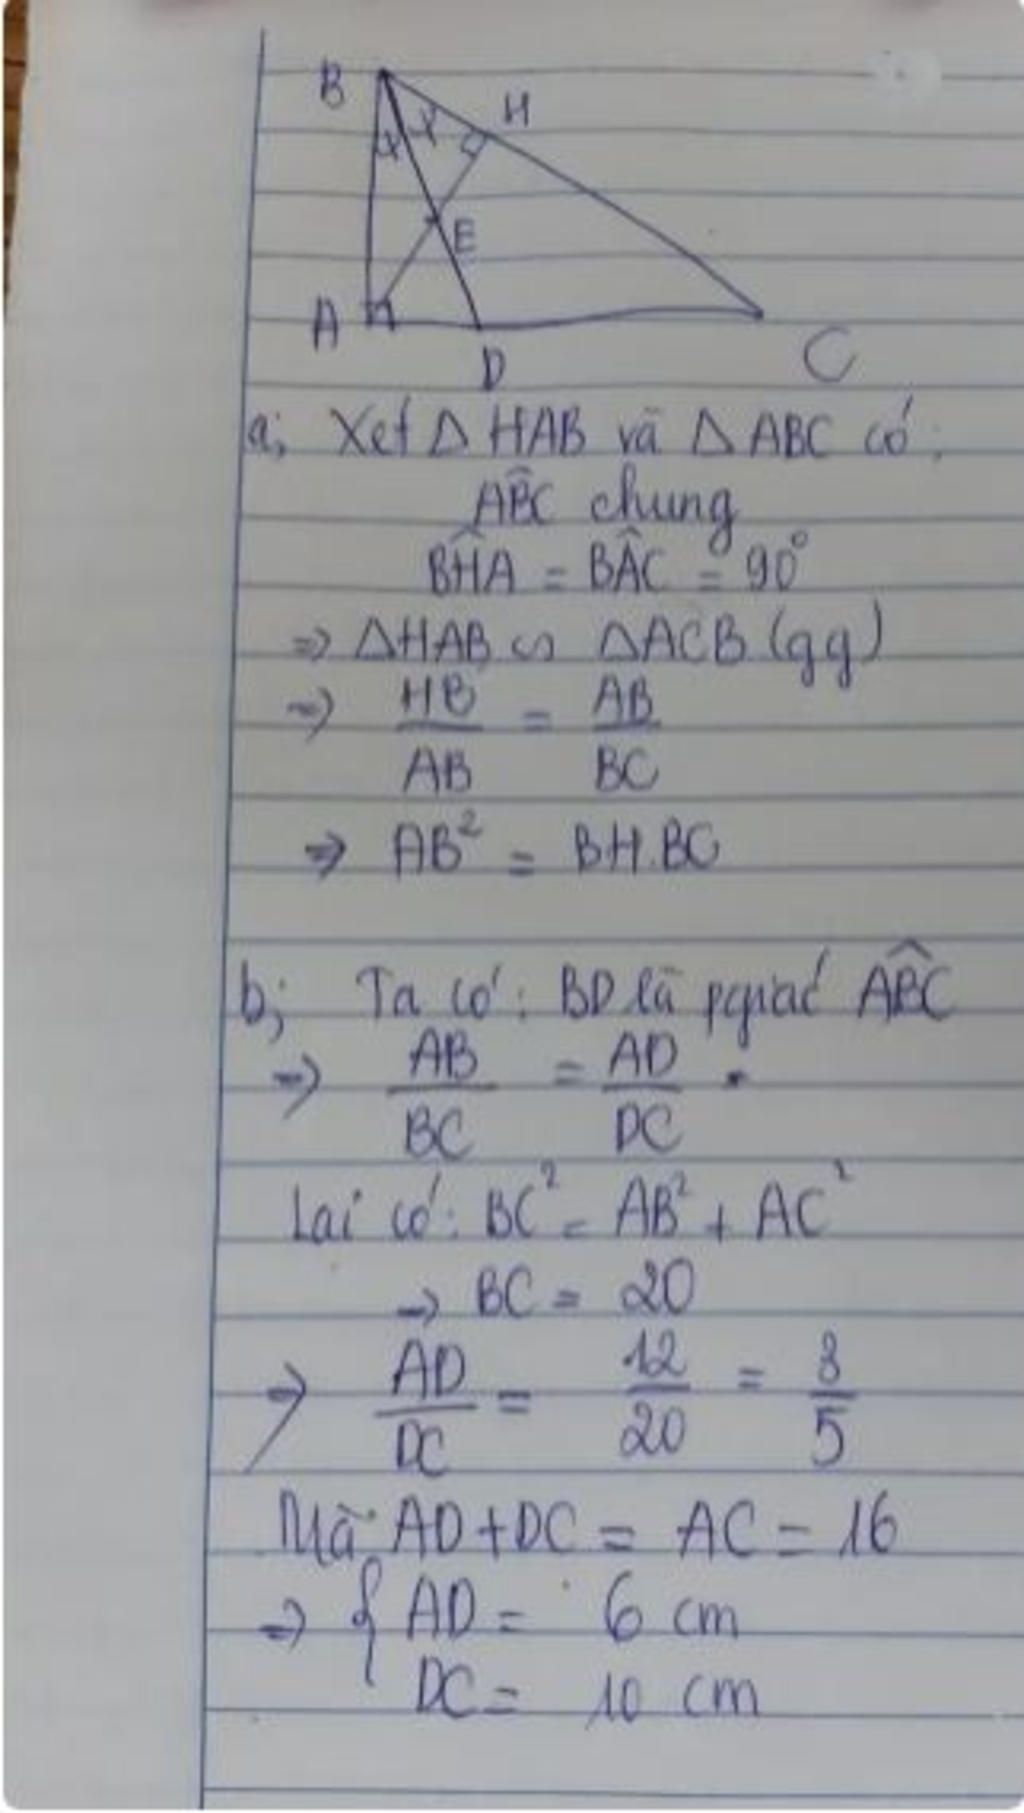 B
H
E
A
D
C
a; Xét Δ HAB và Δ ABC có:
ABC chung
BHA = BAC = 90°
=> ΔHAB ∽ ΔACB (gg)
=> HB/AB = AB/BC
=> AB² = BH.BC
b; Ta có: BD là pgiác ABC
=> AB/BC = AD/DC
Lại có: BC² = AB² + AC²
=> BC = 20
=> AD/DC = 12/20 = 3/5
Mà AD + DC = AC = 16
=> { AD = 6 cm
DC = 10 cm